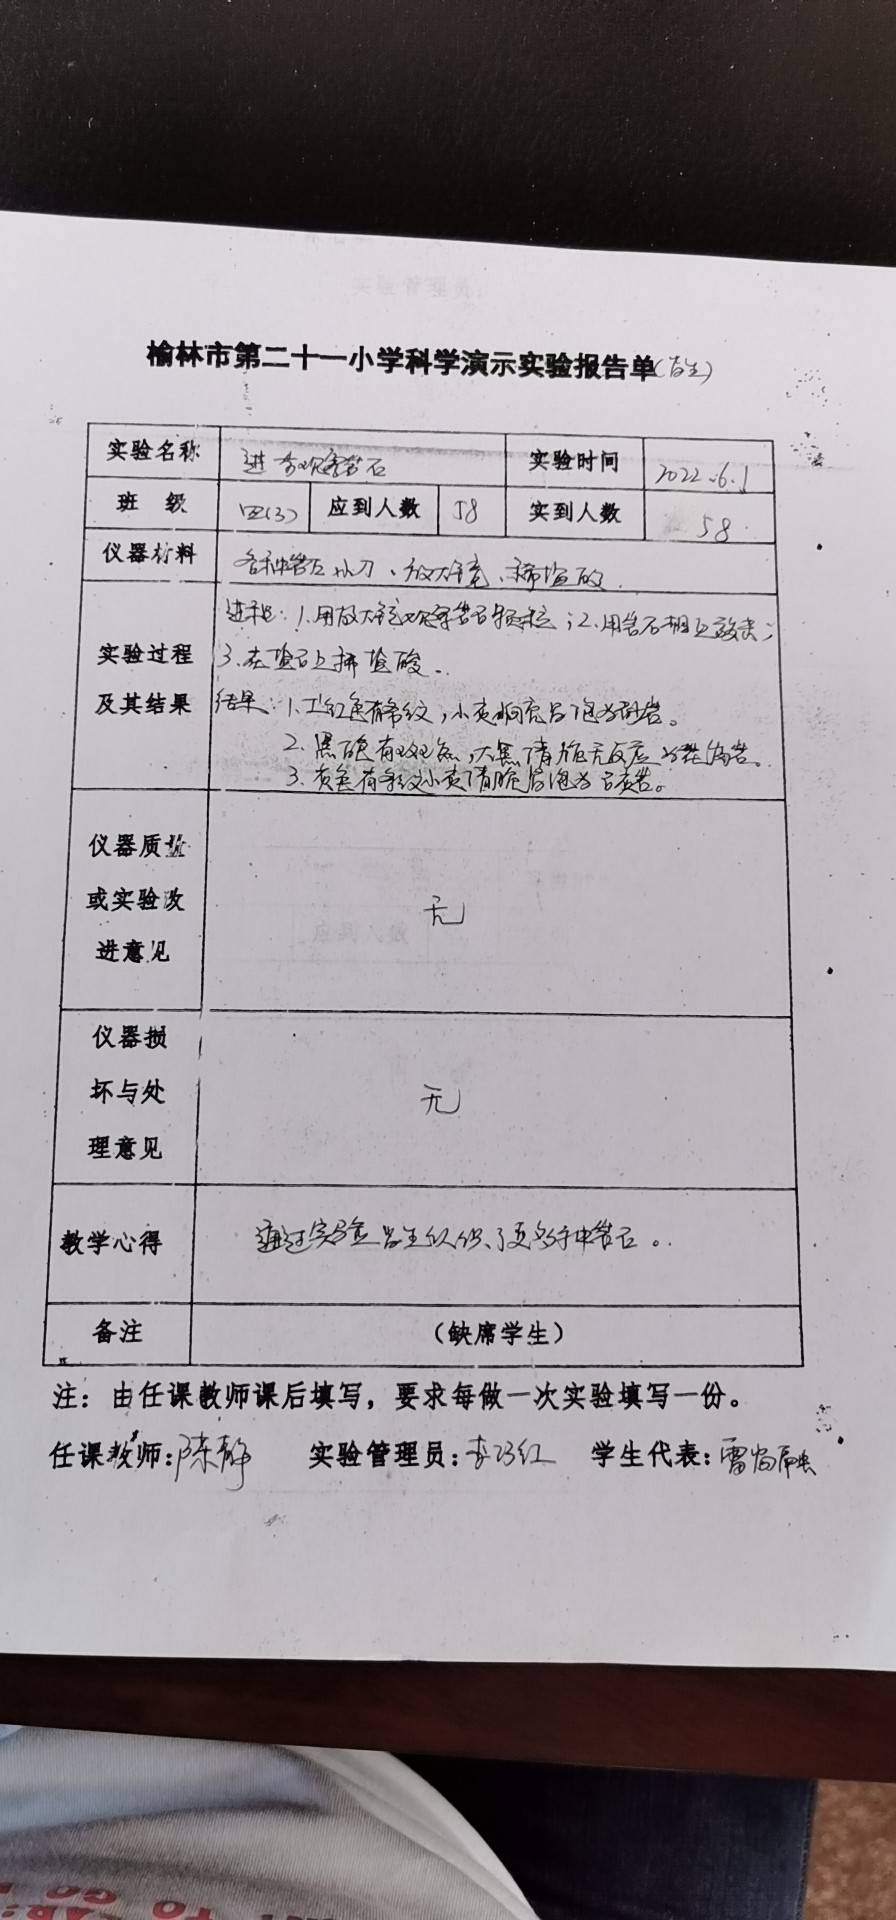 榆林市第二十一小学科学演示实验报告单(学生)
实验名称 进一步观察岩石 实验时间 2022.6.1
班 级 四(3) 应到人数 58 实到人数 58
仪器材料 各种岩石 小刀、放大镜、稀盐酸
进程:1.用放大镜观察岩石颗粒;2.用岩石相互敲击;
实验过程 3.在岩石上滴盐酸。
及其结果 结果:1. 红色有条纹,小
2. 黑 有斑点,大黑 无反应为 岩。
3. 黄色有条纹小黄 为页岩。
仪器质量
或实验改 无
进意见
仪器损
坏与处 无
理意见
教学心得 通过实验学生认识了更多种岩石。
备注 (缺席学生)
注:由任课教师课后填写,要求每做一次实验填写一份。
任课教师:陈静 实验管理员:李巧红 学生代表:雷